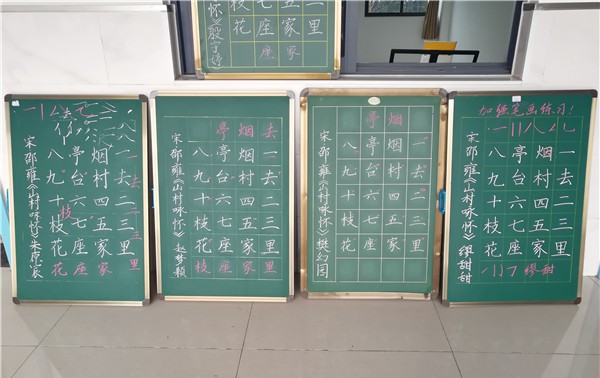 三里
五家家
七座座
枝花
怀》殷宇婷
一去二三里里
烟村四五家家
亭台六七座座
八九十枝花花
枝
宋 邵雍《山村咏怀》
去一去二三里里
烟烟村四五家家
亭亭台六七座座
八九十枝花枝
宋 邵雍《山村咏怀》 赵梦颖
一去二三里
烟烟村四五家
亭亭台六七座
八九十枝花
宋 邵雍《山村咏怀》樊幻园
加强笔画练习!
一去二三里
烟村四五家甜
亭台六七座缪
八九十枝花
宋 邵雍《山村咏怀》 缪甜甜